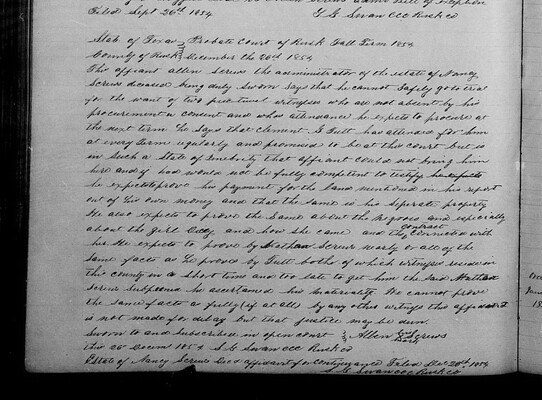 Filed Sept 26th 1854 S. G. Swan CCC Rusk co
State of Texas } Probate Court of Rusk Fall Term 1854
County of Rusk } December the 26th 1854
This affiant Allen Screws the administrator of the estate of Nancy
Screws deceased being duly sworn says that he cannot safely go to trial
for the want of two witnesses who are not absent by his
procurement or consent and whos attendance he expects to procure at
the next term he says that Clement G Tutt has attended for him
at every Term regularly and promised to be at this court but is
in such a State of Inebrity that affiant could not bring him
here and if had would not be fully competent to testify
he expects to prove his payment for the land mentioned in his report
out of his own money and that the same is his seperate property
He also expects to prove the same about the Negroes and especially
about the girl and how she came and the contract connected with
her He expects to prove by Nathan Screws nearly or all of the
same facts as he proved by Tutt boths of which witnesses reside in
this county in a short time and too late to get him the said Nathan
Screws Subpoened he ascertained his materiality He cannot prove
the same facts as fully (if at all) by any other witness this affidavit
is not made for delay but that justice may be dun.
Sworn to and subscribed in open court } Allen his mark Screws
this 26 Decem 1854 S. G. Swan CCC Rusk co
Estate of Nancy Screws Decd affidavit for continuance Filed Dec 26th 1854
S. G. Swan CCC Rusk co